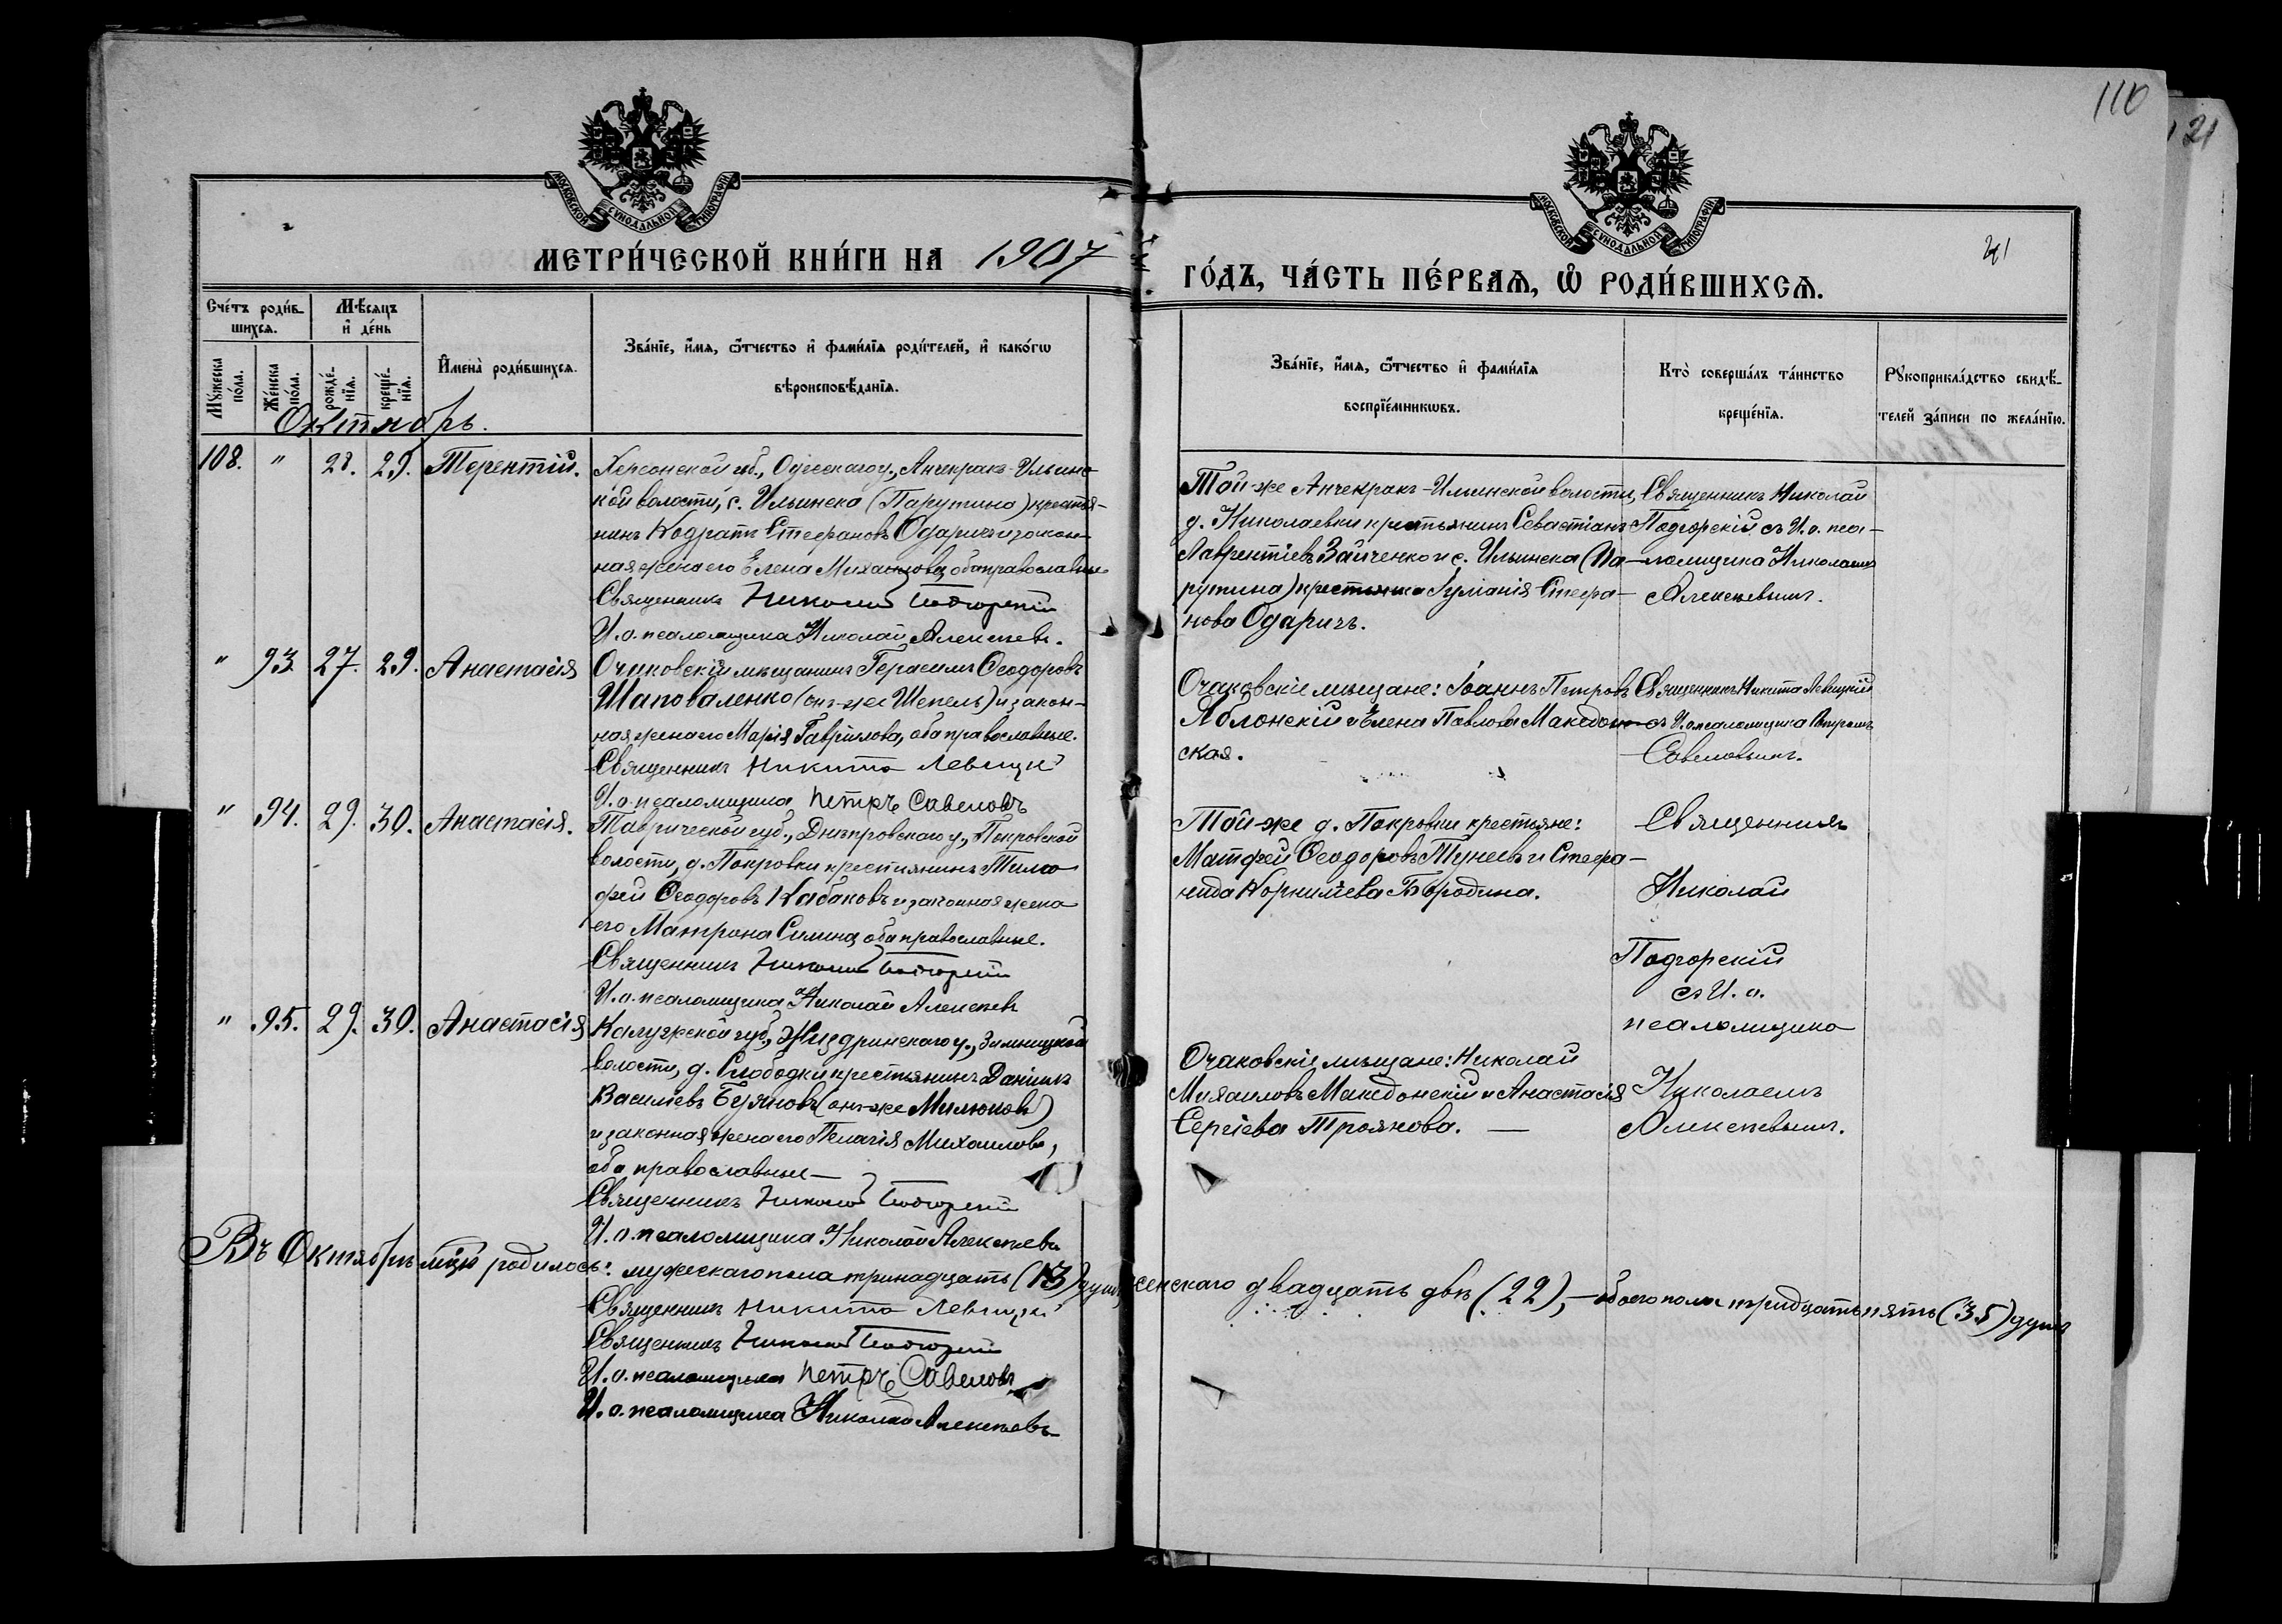 110
21
МОСКОВСКОЙ СУНОДАЛЬНОЙ ТИПОГРАФІИ
МОСКОВСКОЙ СУНОДАЛЬНОЙ ТИПОГРАФІИ
МЕТРИ́ЧЕСКОЙ КНИ́ГИ НА 1907
ГО́ДЪ, ЧА́СТЬ ПЕ́РВАѦ, Ѡ҆ РОДИ́ВШИХСѦ.
Сче́тъ роди́в-
шихся.
Мѣ́сяцъ
и҆ де́нь
Мꙋ́жеска
по́ла.
Же́нска
по́ла.
рожде́-
нїя.
креще́-
нїя.
И҆мена̀ роди́вшихся.
Зва́нїе, и҆́мя, ѻ҆́тчество и҆ фами́лїя роди́телей, и҆ како́гѡ
вѣроисповѣ́данїя.
Зва́нїе, и҆́мя, ѻ҆́тчество и҆ фами́лїя
воспрїе́мникѡвъ.
Кто̀ соверша́лъ та́инство
креще́нїя.
Рꙋкоприкла́дство свидѣ́-
телей за́писи по жела́нїю.
Октябрь.
108. " 28. 29. Терентій.
Херсонской губ., Одесскаго у., Анчекракъ-Ильинс-
кой волости, с. Ильинска (Парутино) крестья-
нинъ Кодратъ Стефановъ Одаричъ и закон-
ная жена его Елена Михаилова, оба православные
Священникъ Николай Подгорскій
И. о. псаломщика Николай Алексѣевъ.
Той-же Анчекракъ-Ильинской волости,
д. Николаевки крестьянинъ Севастіанъ
Лаврентіевъ Зайченко и с. Ильинска (Па-
рутина) крестьянка Іуліанія Стефа-
нова Одаричъ.
Священникъ Николай
Подгорскій съ И. о. пса-
ломщика Николаемъ
Алексѣевымъ.
" 93. 27. 29. Анастасія
Очаковскій мѣщанинъ Герасимъ Ѳеодоровъ
Шаповаленко (онъ-же Шепель) и закон-
ная жена его Марія Гаврилова, оба православные.
Священникъ Никита Левицкій
И. о. псаломщика Петръ Савеловъ
Очаковскіе мѣщане: Іоаннъ Петровъ
Яблонскій и Елена Павлова Македон-
ская.
Священникъ Никита Левицкій
съ И. о. псаломщика Петромъ
Савеловымъ.
" 94. 29. 30. Анастасія.
Таврической губ., Днѣпровскаго у., Покровской
волости, д. Покровки крестьянинъ Тимо-
фей Ѳеодоровъ Кабаковъ и законная жена
его Матрона Силина, оба православные.
Священникъ Николай Подгорскій
И. о. псаломщика Николай Алексѣевъ
Той-же д. Покровки крестьяне:
Матфей Ѳеодоровъ Тунеевъ и Стефа-
нида Корниліева Бородина.
Священникъ
Николай
Подгорскій
съ И. о.
псаломщика
Николаемъ
Алексѣевымъ.
" 95. 29. 30. Анастасія
Калужской губ., Жиздринскаго у., Зимницкой
волости, д. Слободки крестьянинъ Даніилъ
Василіевъ Буяновъ (онъ-же Милюковъ)
и законная жена его Пелагія Михаилова,
оба православные
Священникъ Николай Подгорскій
И. о. псаломщика Николай Алексѣевъ
Очаковскіе мѣщане: Николай
Михаиловъ Македонскій и Анастасія
Сергіева Троянова.
Въ Октябрѣ мцѣ родилось: мужескаго пола тринадцать (13) душъ, женскаго двадцать двѣ (22), обоего пола тридцать пять (35) душъ
Священникъ Никита Левицкій
Священникъ Николай Подгорскій
И. о. псаломщика Петръ Савеловъ
И. о. псаломщика Николай Алексѣевъ